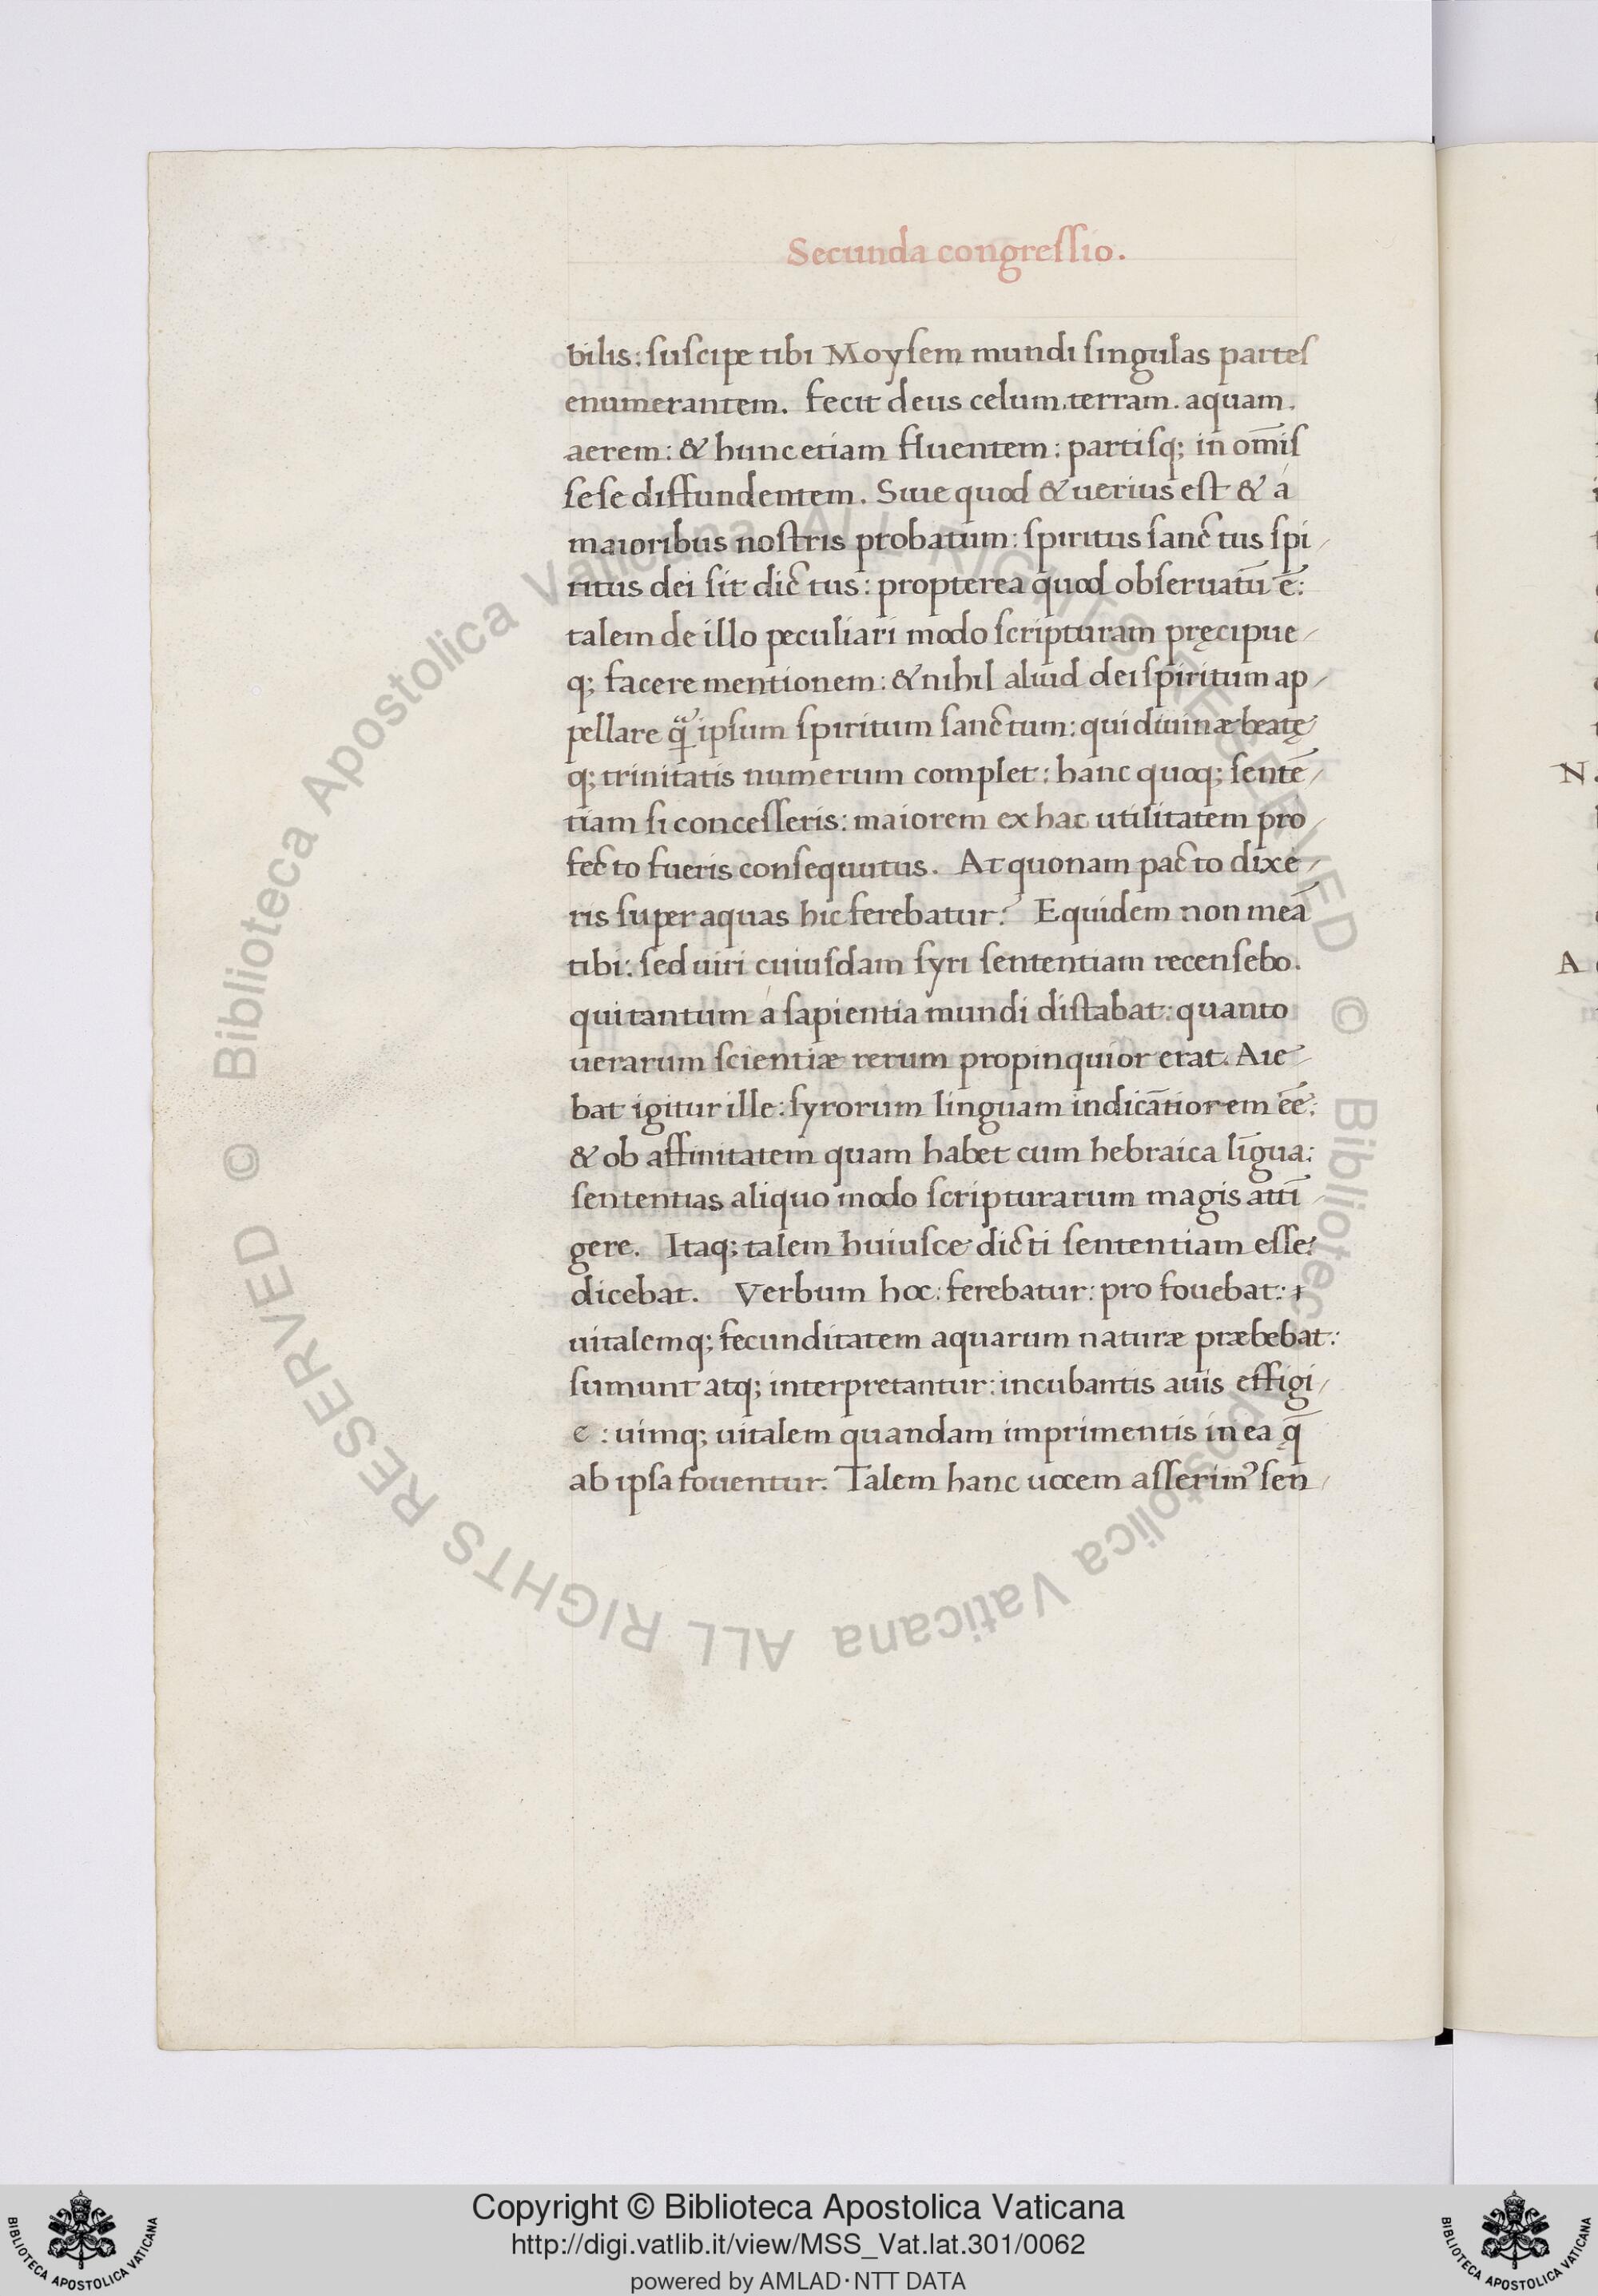 Secunda congreſſio.
bilis: ſuſcipe tibi Moyſem mundi ſingulas parteſ
enumerantem. fecit deus celum. terram. aquam.
aerem: & hunc etiam fluentem: partiſq; in om̄iſ
ſeſe diffundentem. Siue quod & uerius eſt & á
maioribus noſtris probatum: ſpiritus ſanctus ſpi/
ritus dei ſit dictus: propterea quod obſeruatū ē:
talem de illo peculiari modo ſcripturam pręcipue/
q; facere mentionem: & nihil aliud dei ſpiritum ap/
pellare q̃ ipſum ſpiritum ſanctum: qui diuinæ beatę
q; trinitatis numerum complet: hanc quoq; ſentē/
tiam ſi conceſſeris: maiorem ex hac utilitatem pro
fecto fueris conſequutus. At quonam pacto dixe/
ris ſuper aquas hic ferebatur? Equidem non meā
tibi: ſed uiri cuiuſdam ſyri ſententiam recenſebo.
qui tantum á ſapientia mundi diſtabat: quanto
uerarum ſcientiæ rerum propinquior erat. Aie
bat igitur ille: ſyrorum linguam indicātiorem eē:
& ob affinitatem quam habet cum hebraica līgua:
ſententias aliquo modo ſcripturarum magis attī/
gere. Itaq; talem huiuſce dicti ſententiam eſſe
dicebat. Verbum hoc: ferebatur: pro fouebat:
uitalemq; fecunditatem aquarum naturæ præbebat:
ſumunt atq; interpretantur: incubantis auis effigi/
ē: uimq; uitalem quandam imprimentis in ea q̄
ab ipſa fouentur. Talem hanc uocem aſſerimꝰ ſen/
N.
A
© Biblioteca Apostolica Vaticana ALL RIGHTS RESERVED © Biblioteca Apostolica Vaticana ALL RIGHTS RESERVED
Copyright © Biblioteca Apostolica Vaticana
http://digi.vatlib.it/view/MSS_Vat.lat.301/0062
powered by AMLAD·NTT DATA
BIBLIOTECA APOSTOLICA VATICANA
BIBLIOTECA APOSTOLICA VATICANA